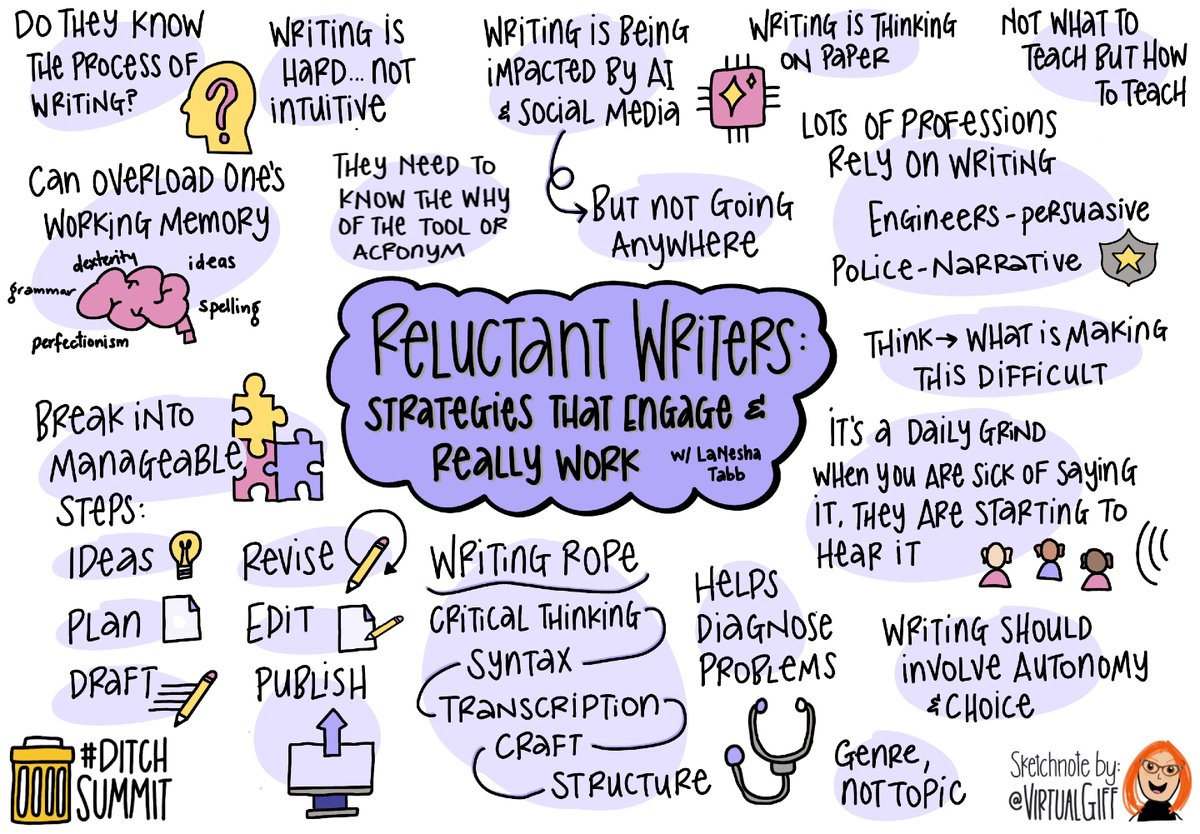 Do they know
the process of
writing?
Writing is
hard... not
intuitive
Writing is being
impacted by AI
& social media
But not going
anywhere
Writing is thinking
on paper
Not what to
teach but how
to teach
Can overload one's
working memory
dexterity
ideas
grammar
spelling
perfectionism
They need to
know the why
of the tool or
acronym
Lots of professions
rely on writing
Engineers - persuasive
Police - Narrative
Reluctant Writers:
Strategies that engage &
really work
w/ LaNesha
Tabb
Think → what is making
this difficult
Break into
manageable
steps:
Ideas
Plan
Draft
Revise
Edit
Publish
Writing rope
Critical thinking
Syntax
Transcription
Craft
Structure
Helps
diagnose
problems
It's a daily grind
When you are sick of saying
it, they are starting to
hear it
Writing should
involve autonomy
& choice
Genre,
not topic
#Ditch
Summit
Sketchnote by:
@VirtualGiff